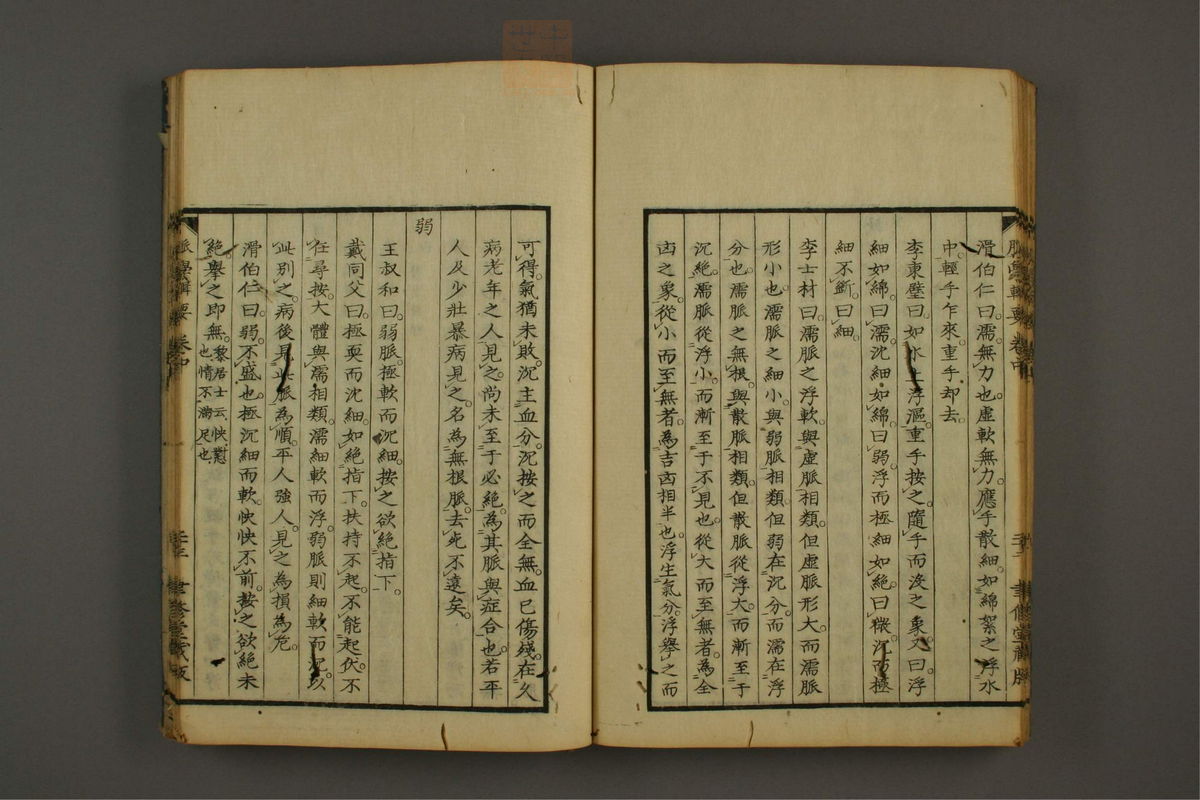 滑伯仁曰濡無力也虛軟無力應手散細如綿絮之浮水
中輕手乍來重手却去
李東璧曰如水上浮漚重手按之隨手而沒之象又曰浮
細如綿曰濡沈細如綿曰弱浮而極細如絕曰微沉而極
細不斷曰細
李士材曰濡脈之浮軟與虛脈相類但虛脈形大而濡脈
形小也濡脈之細小與弱脈相類但弱在沉分而濡在浮
分也濡脈之無根與散脈相類但散脈從浮大而漸至于
沉絕濡脈從浮小而漸至于不見也從大而至無者為全
凶之象從小而至無者為吉凶相半也浮主氣分浮舉之而
可得氣猶未敗沉主血分沉按之而全無血已傷殘在久
病老年之人見之尚未至于必絕為其脈與症合也若平
人及少壯暴病見之名為無根脈去死不遠矣
弱
王叔和曰弱脈極軟而沉細按之欲絕指下
戴同父曰極耎而沈細如絕指下扶持不起不能起伏不
任尋按大體與濡相類濡細軟而浮弱脈則細軟而沉以
此別之病後見此脈為順平人強人見之為損為危
滑伯仁曰弱不盛也極沉細而軟怏怏不前按之欲絕未
絕舉之即無黎居士云怏懟
也情不滿足也
脈學輯要 卷中
聿修堂藏版